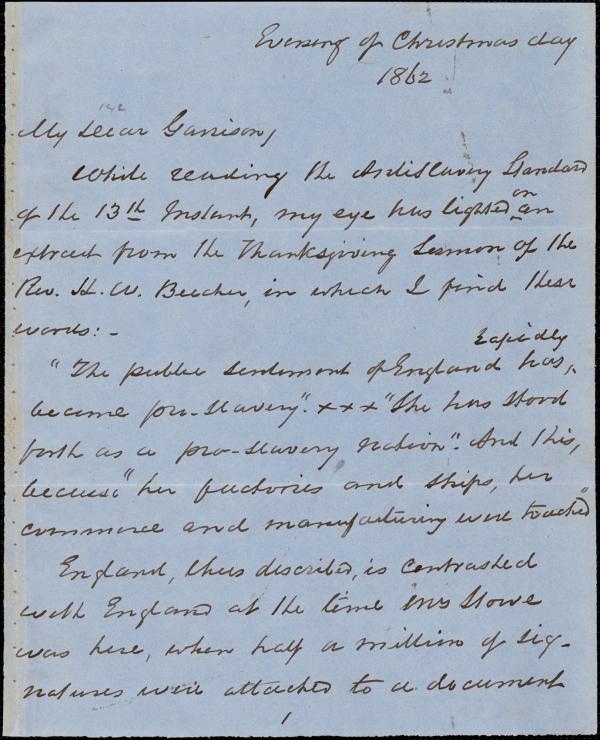 Evening of Christmas day
1862
My Dear Garrison,
While reading the Antislavery Standard
of the 13th Instant, my eye has lighted on an
extract from the Thanksgiving Sermon of the
Rev. H. W. Beecher, in which I find these
words: -
"The public sentiment of England has, rapidly
become pro-slavery". x x x "She has stood
forth as a pro-slavery nation". And this,
because "her factories and ships, her
commerce and manufacturing were touched"
England, thus described, is contrasted
with England at the time Mrs Stowe
was here, when half a million of sig-
natures were attached to a document
1